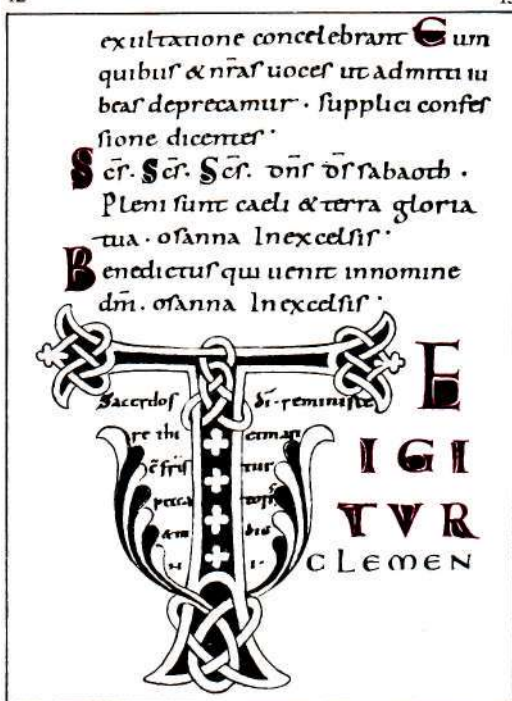 exultatione concelebrant Cum
quibus & nr̄as uoces ut admitti iu
beas deprecamur · supplici confes
sione dicentes ·
Sc̄s. Sc̄s. Sc̄s. dn̄s d̄s sabaoth ·
Pleni sunt caeli & terra gloria
tua · osanna Inexcelsis ·
Benedictus qui uenit innomine
dn̄i. osanna Inexcelsis ·
TE
IGI
TVR
CLEMEN
Sacerdos dī · reminisce
re
tur